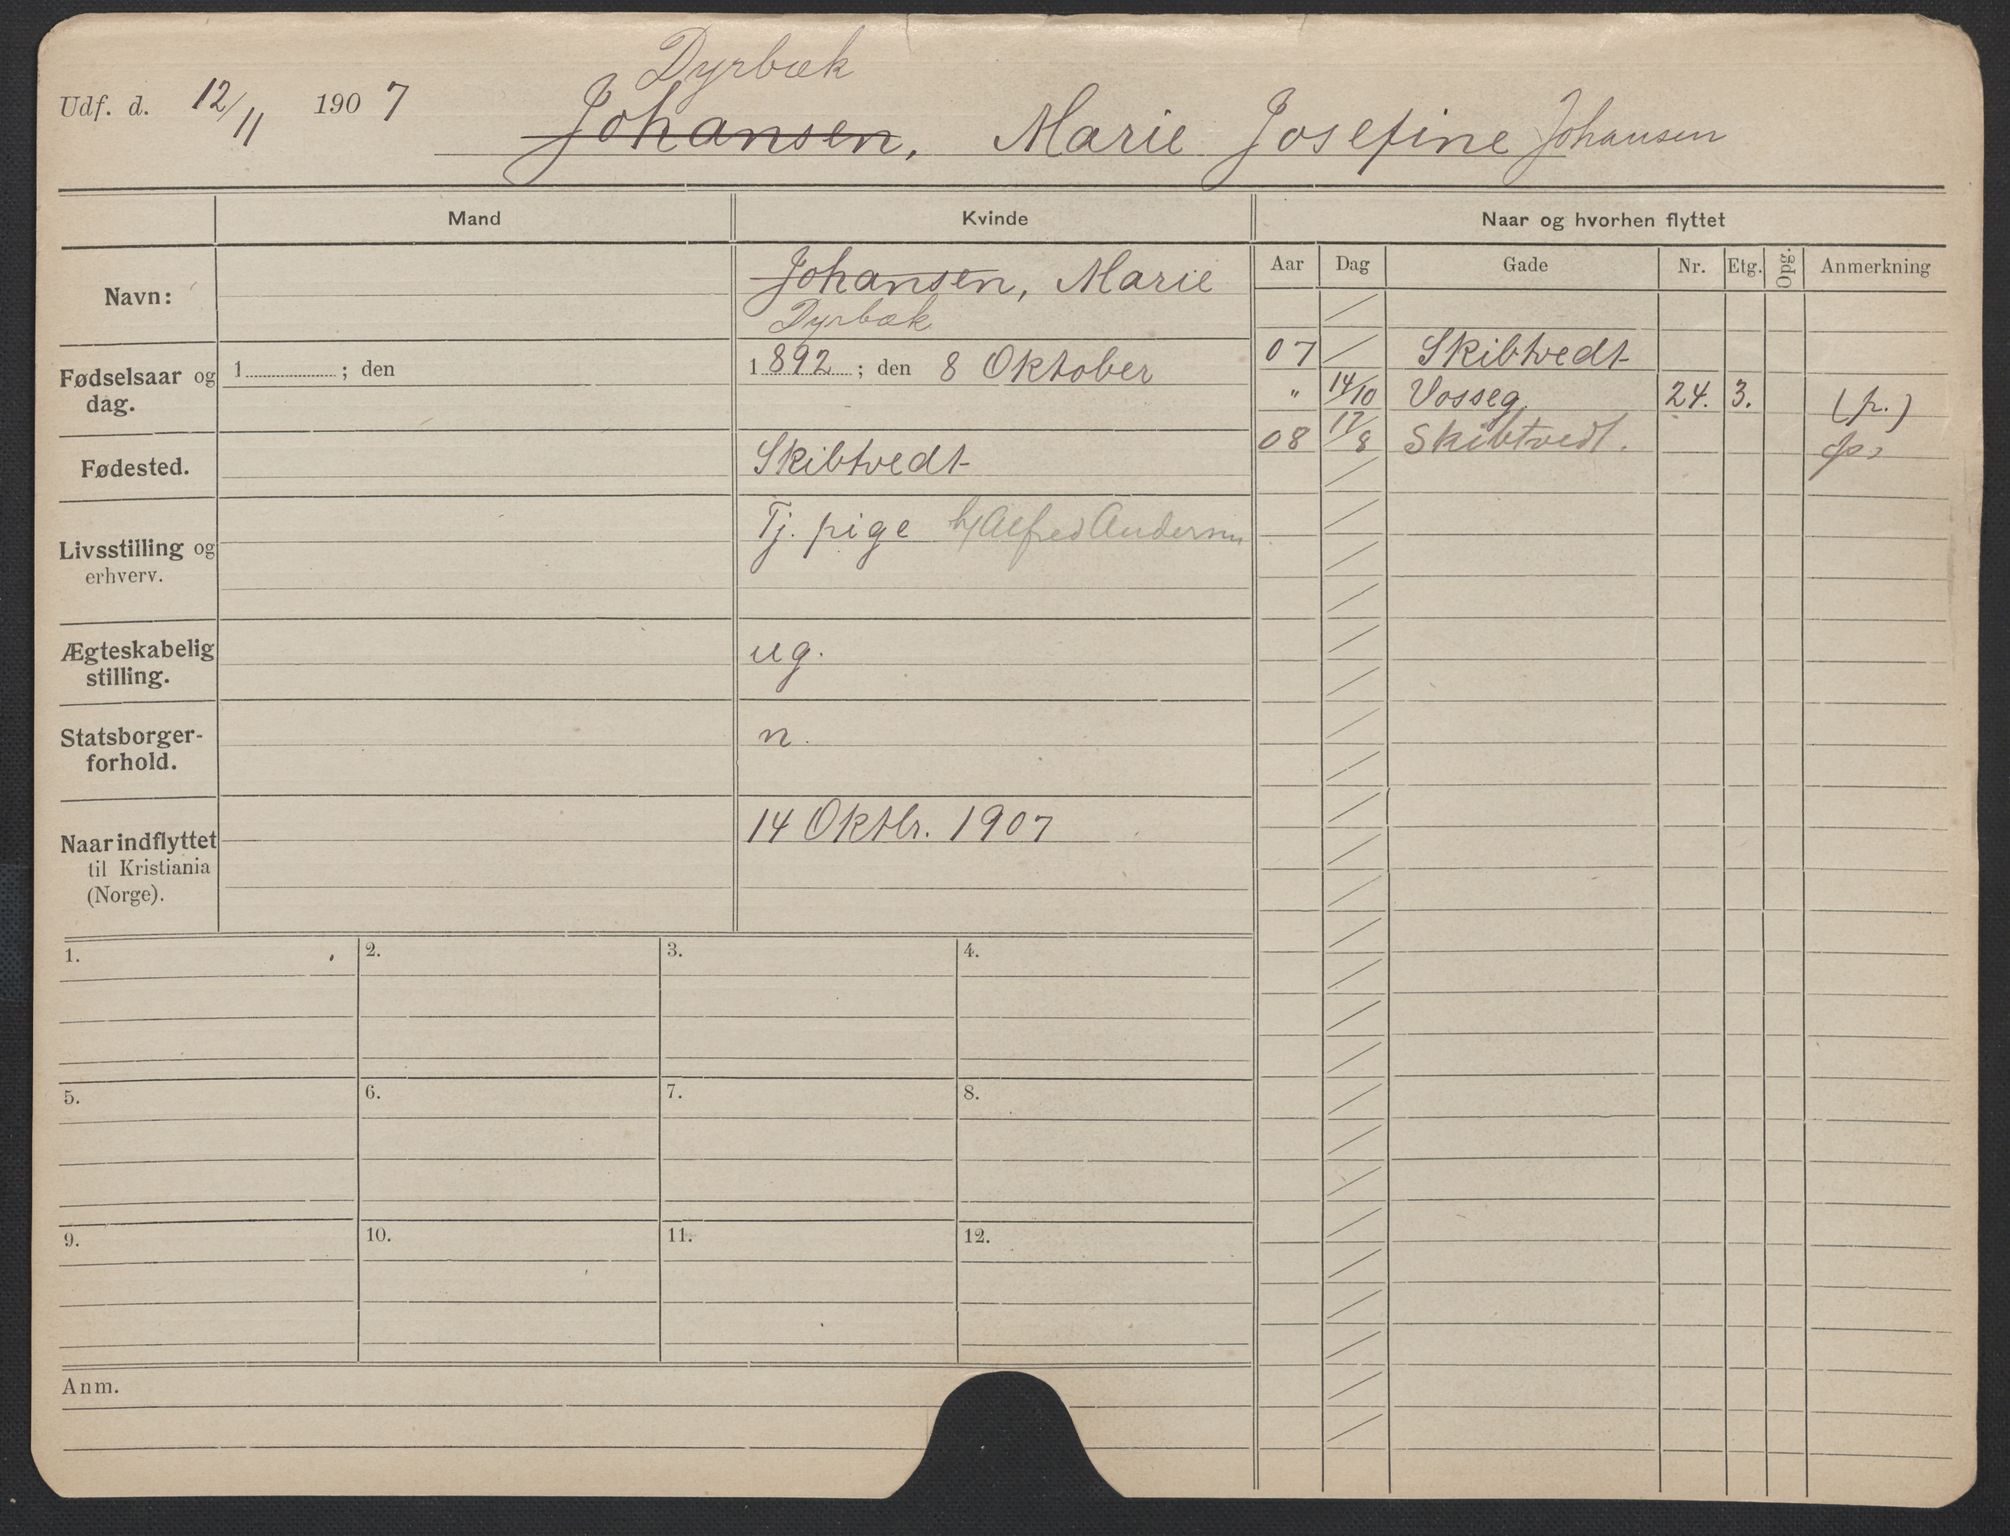 Dyrbæk
Udf. d. 12/11 1907 Johansen, Marie Josefine Johansen
Mand Kvinde Naar og hvorhen flyttet
Aar Dag Gade Nr. Etg. Opg. Anmerkning
Navn: Johansen, Marie
Dyrbæk
07 Skibtvedt
Fødselsaar og dag. 1 ; den 1892 ; den 8 Oktober
" 14/10 Vosseg. 24. 3. (p.)
08 17/8 Skibtvedt.
Fødested. Skibtvedt
Livsstilling og Tj. pige h/ Alfred Andersen
erhverv.
Ægteskabelig ug.
stilling.
Statsborger- n.
forhold.
Naar indflyttet 14 Oktbr. 1907
til Kristiania
(Norge).
1. 2. 3. 4.
5. 6. 7. 8.
9. 10. 11. 12.
Anm.